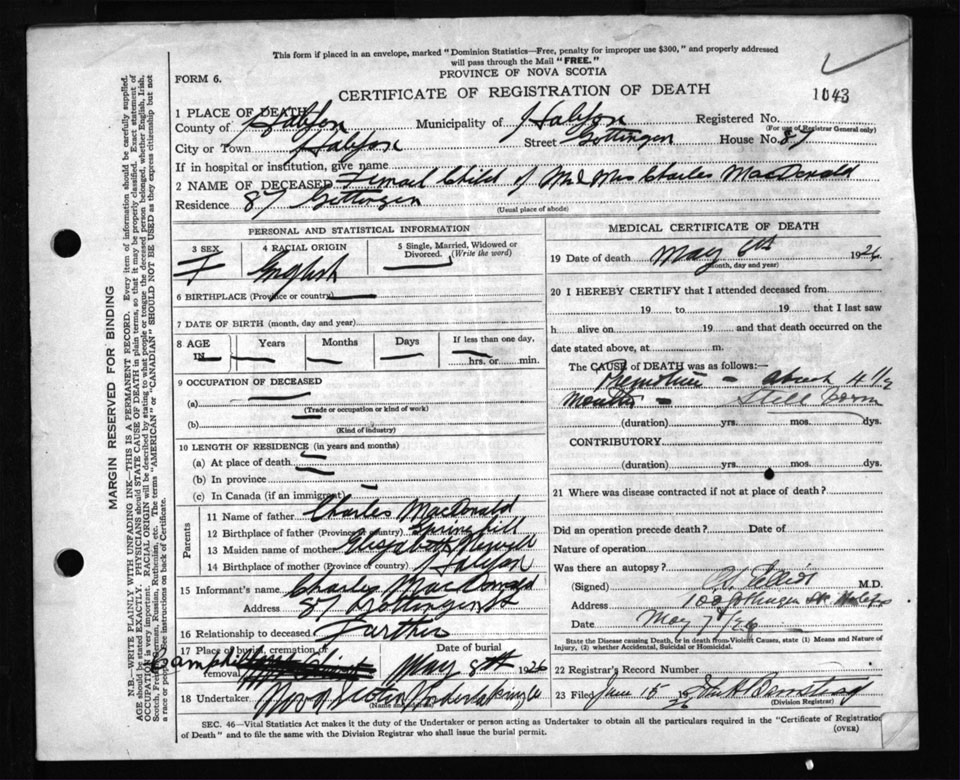 This form if placed in an envelope, marked "Dominion Statistics—Free, penalty for improper use $300," and properly addressed
will pass through the Mail "FREE."
PROVINCE OF NOVA SCOTIA
FORM 6.
CERTIFICATE OF REGISTRATION OF DEATH
1043
1 PLACE OF DEATH
County of Halifax Municipality of Halifax Registered No.
(For use of Registrar General only)
City or Town Halifax Street Gottingen House No. 87
If in hospital or institution, give name
2 NAME OF DECEASED Femail Child of Mr & Mrs Charles MacDonald
Residence 87 Gottingen
(Usual place of abode)
PERSONAL AND STATISTICAL INFORMATION
3 SEX 4 RACIAL ORIGIN 5 Single, Married, Widowed or Divorced. (Write the word)
F English
6 BIRTHPLACE (Province or country)
7 DATE OF BIRTH (month, day and year)
8 AGE IN Years Months Days If less than one day, hrs. or min.
9 OCCUPATION OF DECEASED
(a)
(Trade or occupation or kind of work)
(b)
(Kind of industry)
10 LENGTH OF RESIDENCE (in years and months)
(a) At place of death
(b) In province
(c) In Canada (if an immigrant)
Parents
11 Name of father Charles MacDonald
12 Birthplace of father (Province or country) Springhill
13 Maiden name of mother Elizabeth
14 Birthplace of mother (Province or country) Halifax
15 Informant's name Charles MacDonald
Address 87 Gottingen St
16 Relationship to deceased Farther
17 Place of burial, cremation or removal Date of burial
May 8th 1926
18 Undertaker Nova Scotia Undertaking Co
(Name and address)
MEDICAL CERTIFICATE OF DEATH
19 Date of death May 1926
(month, day and year)
20 I HEREBY CERTIFY that I attended deceased from
19 to 19 that I last saw
h alive on 19 and that death occurred on the
date stated above, at m.
The CAUSE of DEATH was as follows:—
Premature – about 4 1/2
months – Still born
(duration) yrs. mos. dys.
CONTRIBUTORY
(duration) yrs. mos. dys.
21 Where was disease contracted if not at place of death?
Did an operation precede death? Date of
Nature of operation
Was there an autopsy?
(Signed) M.D.
Address
Date May 7/26
State the Disease causing Death, or in death from Violent Causes, state (1) Means and Nature of
Injury, (2) whether Accidental, Suicidal or Homicidal.
22 Registrar's Record Number
23 Filed June 15
(Division Registrar)
SEC. 46—Vital Statistics Act makes it the duty of the Undertaker or person acting as Undertaker to obtain all the particulars required in the "Certificate of Registration
of Death" and to file the same with the Division Registrar who shall issue the burial permit.
(OVER)
MARGIN RESERVED FOR BINDING
N.B.—WRITE PLAINLY WITH UNFADING INK—THIS IS A PERMANENT RECORD. Every item of information should be carefully supplied.
AGE should be stated EXACTLY. PHYSICIANS should STATE CAUSE OF DEATH in plain terms, so that it may be properly classified. Exact statement of
OCCUPATION is very important. RACIAL ORIGIN will be described by stating to what people or tongue the deceased person belonged, whether English, Irish,
Scotch, French, German, Russian, Ruthenian, etc. The terms "AMERICAN" or "CANADIAN" SHOULD NOT BE USED as they express citizenship but not
a race or people. See instructions on back of Certificate.